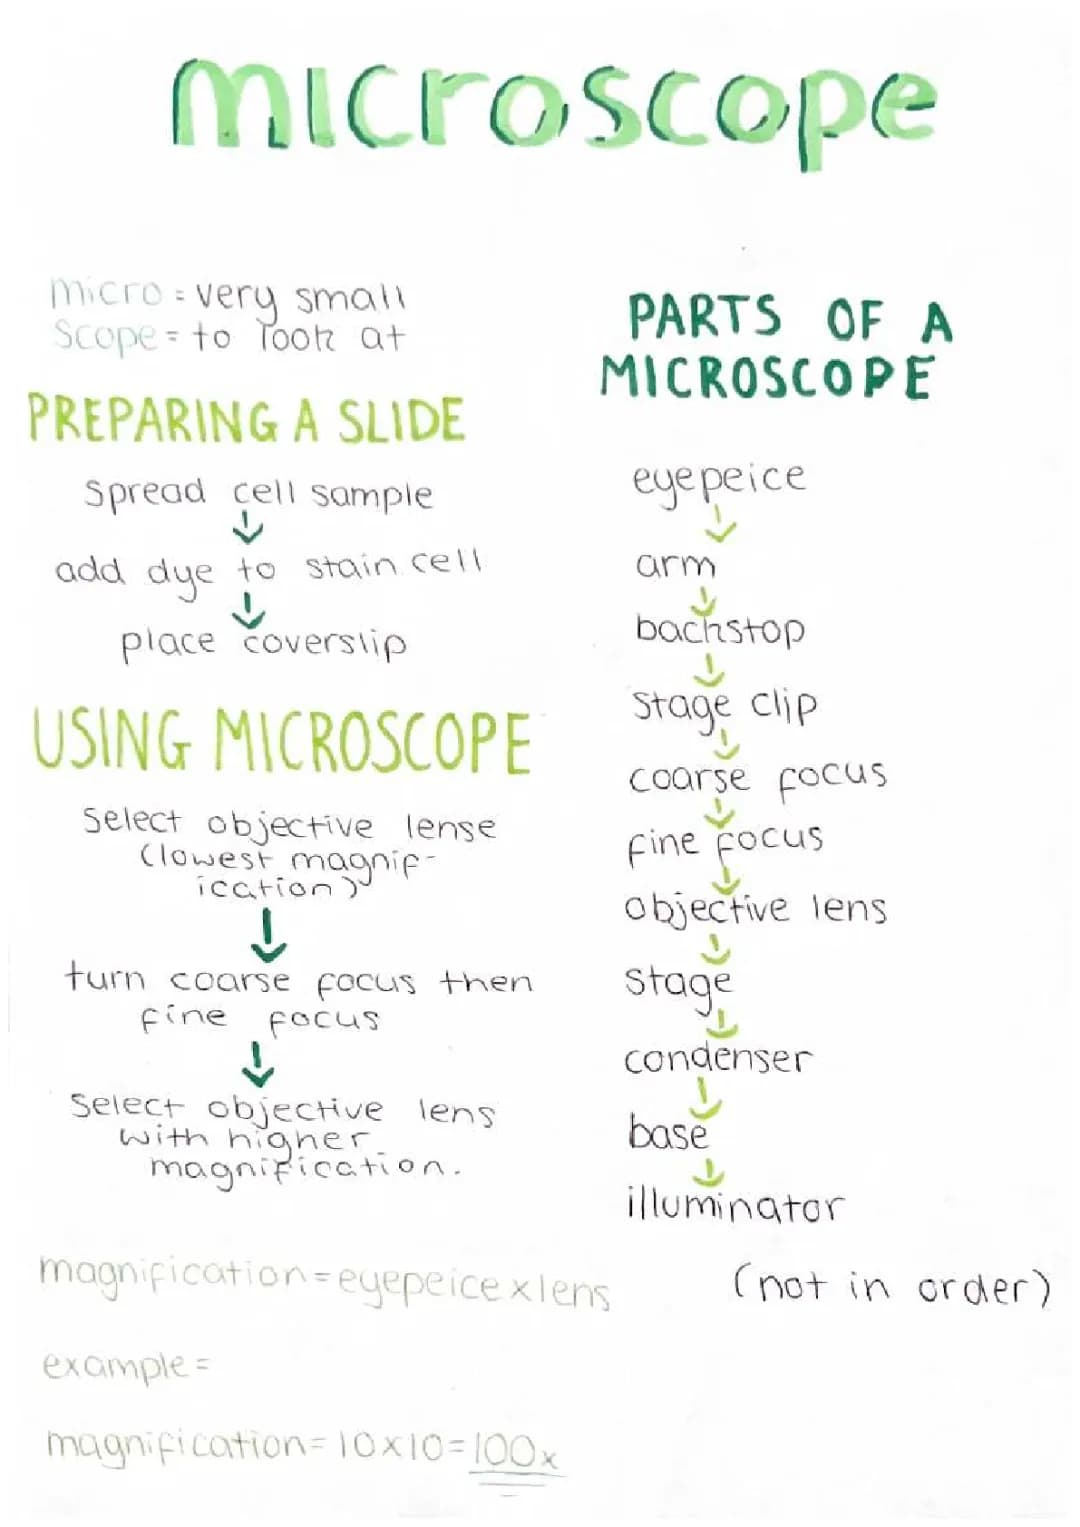 microscope
micro = very small
Scope = to look at
PREPARING A SLIDE
Spread cell sample
add dye to stain cell
place coverslip
USING MICROSCOPE
Select objective lense
(lowest magnif-
ication)
turn coarse focus then
fine focus
Select objective lens
with higher
magnification.
magnification = eyepeice x lens
example =
magnification = 10x10 = 100x
PARTS OF A
MICROSCOPE
eyepeice
arm
backstop
Stage clip
coarse focus
fine focus
objective lens
Stage
condenser
base
illuminator
(not in order)